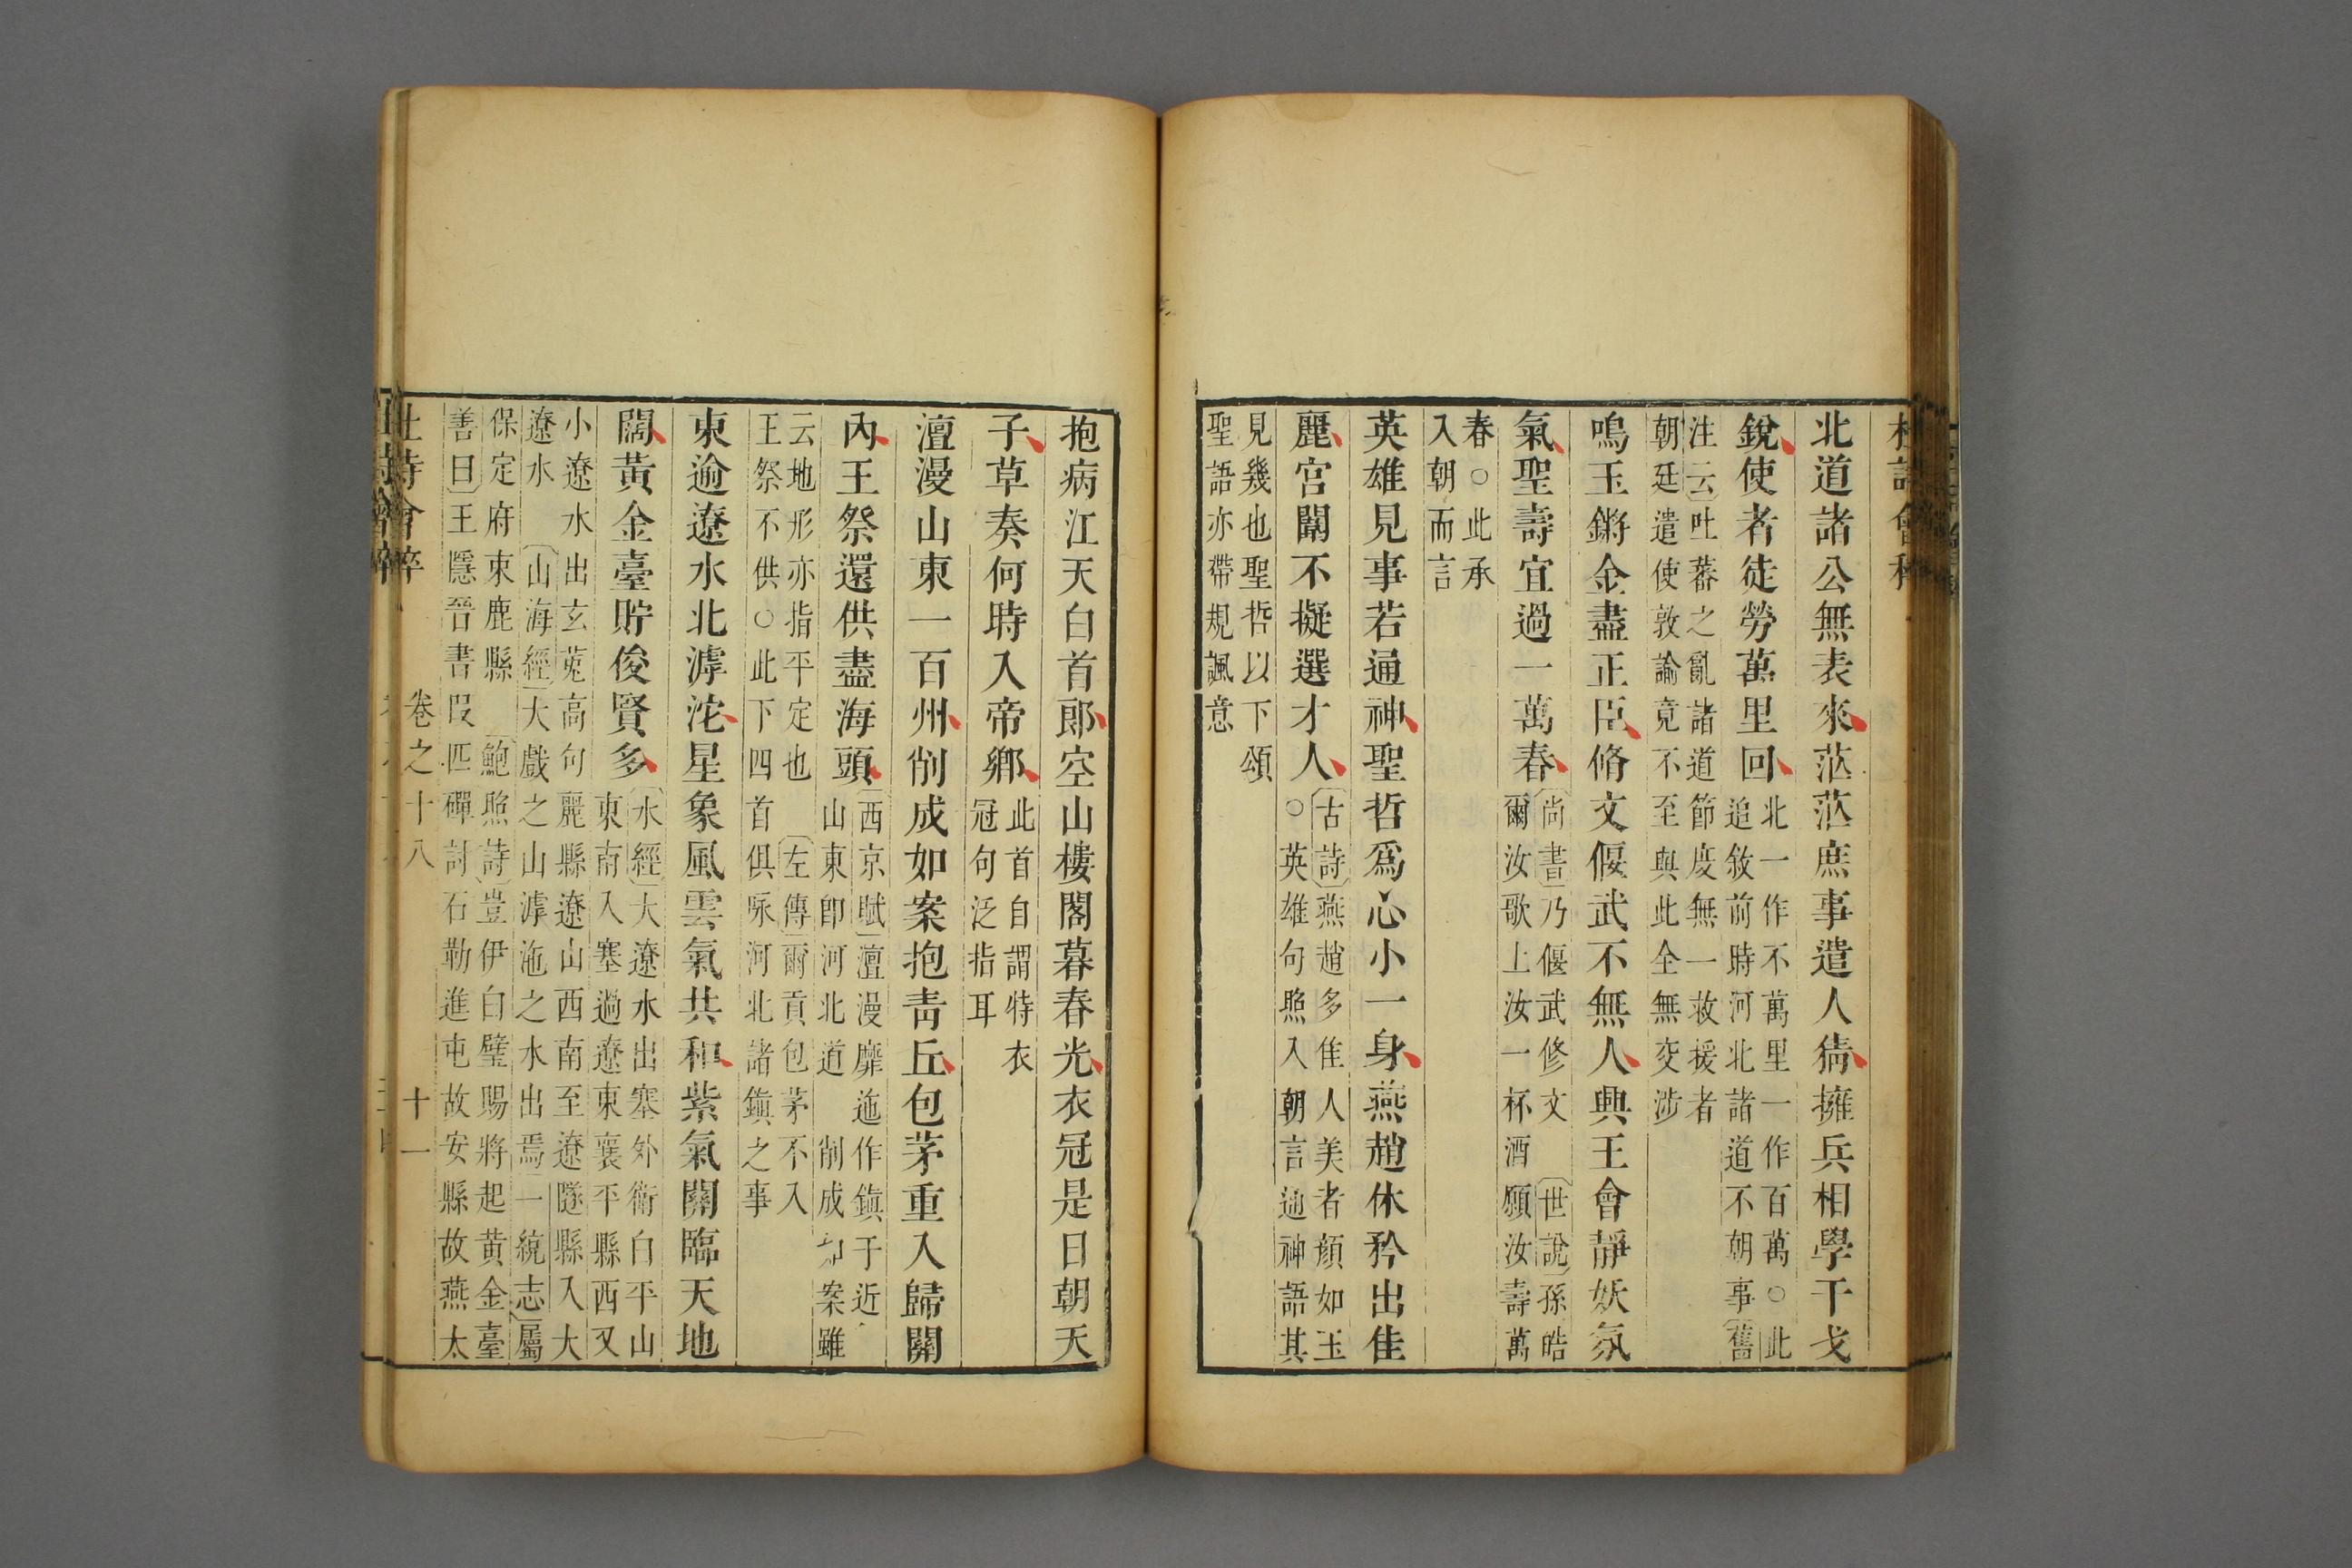 北道諸公無表來茫茫庶事遣人猜擁兵相學干戈
銳使者徒勞萬里回
北一作不萬里一作百萬○此
追敘前時河北諸道不朝事舊
注云吐蕃之亂諸道節度無一救援者
朝廷遣使敦諭竟不至與此全無交涉
鳴玉鏘金盡正臣脩文偃武不無人興王會靜妖氛
氣聖壽宜過一萬春
尚書乃偃武修文 世說孫皓
爾汝歌上汝一杯酒願汝壽萬
春○此承
入朝而言
英雄見事若通神聖哲爲心小一身燕趙休矜出佳
麗宮闕不擬選才人
古詩燕趙多佳人美者顏如玉
○英雄句照入朝言通神語其
見幾也聖哲以下頌
聖語亦帶規諷意
抱病江天白首郎空山樓閣暮春光衣冠是日朝天
子草奏何時入帝鄉
此首自謂特衣
冠句泛指耳
澶漫山東一百州削成如案抱青丘包茅重入歸關
內王祭還供盡海頭
西京賦澶漫靡迤作鎮于近
山東即河北道 削成如案雖
云地形亦指平定也 左傳爾貢包茅不入
王祭不供○此下四首俱咏河北諸鎮之事
東逾遼水北滹沱星象風雲氣共和紫氣關臨天地
闊黃金臺貯俊賢多
水經大遼水出塞外衛白平山
東南入塞過遼東襄平縣西又
小遼水出玄莵高句麗縣遼山西南至遼隧縣入大
遼水 山海經大戲之山滹沱之水出焉一統志屬
保定府束鹿縣 鮑照詩豈伊白璧賜將起黃金臺
善曰王隱晉書叚匹磾討石勒進屯故安縣故燕太
杜詩會稡 卷之十八 十一